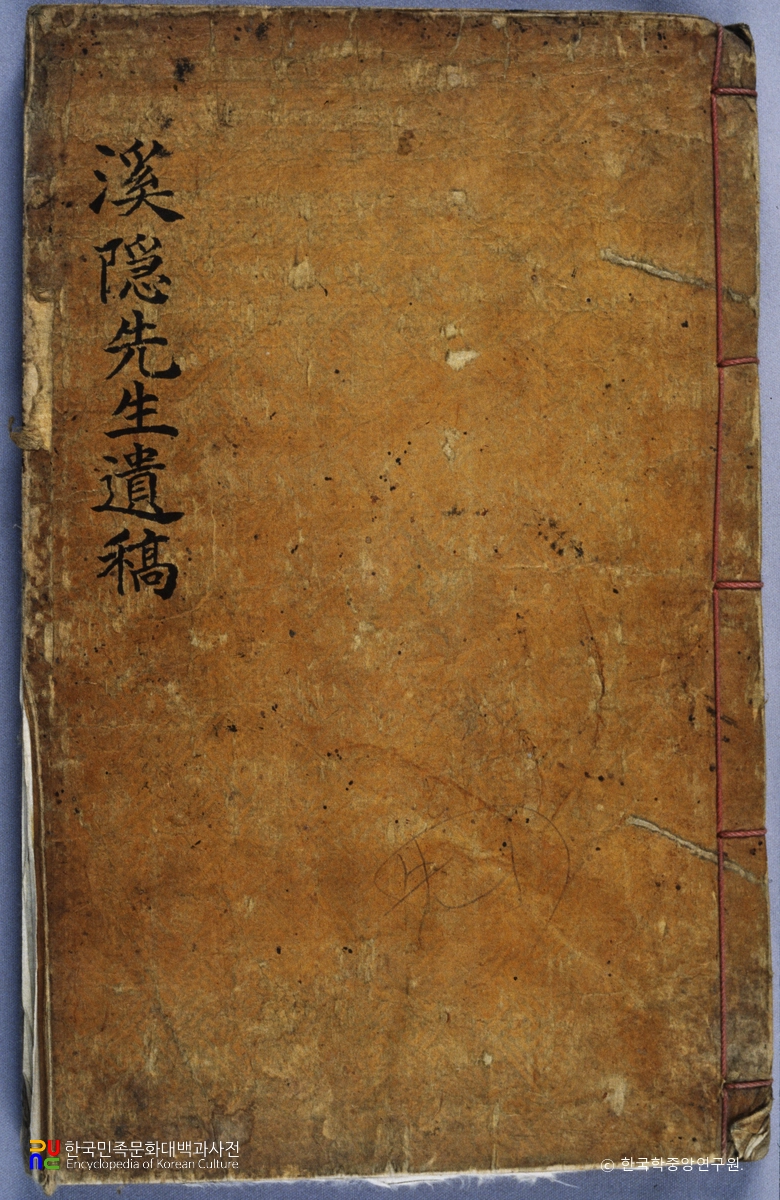 溪隠先生遺稿
한국민족문화대백과사전
Encyclopedia of Korean Culture
© 한국학중앙연구원